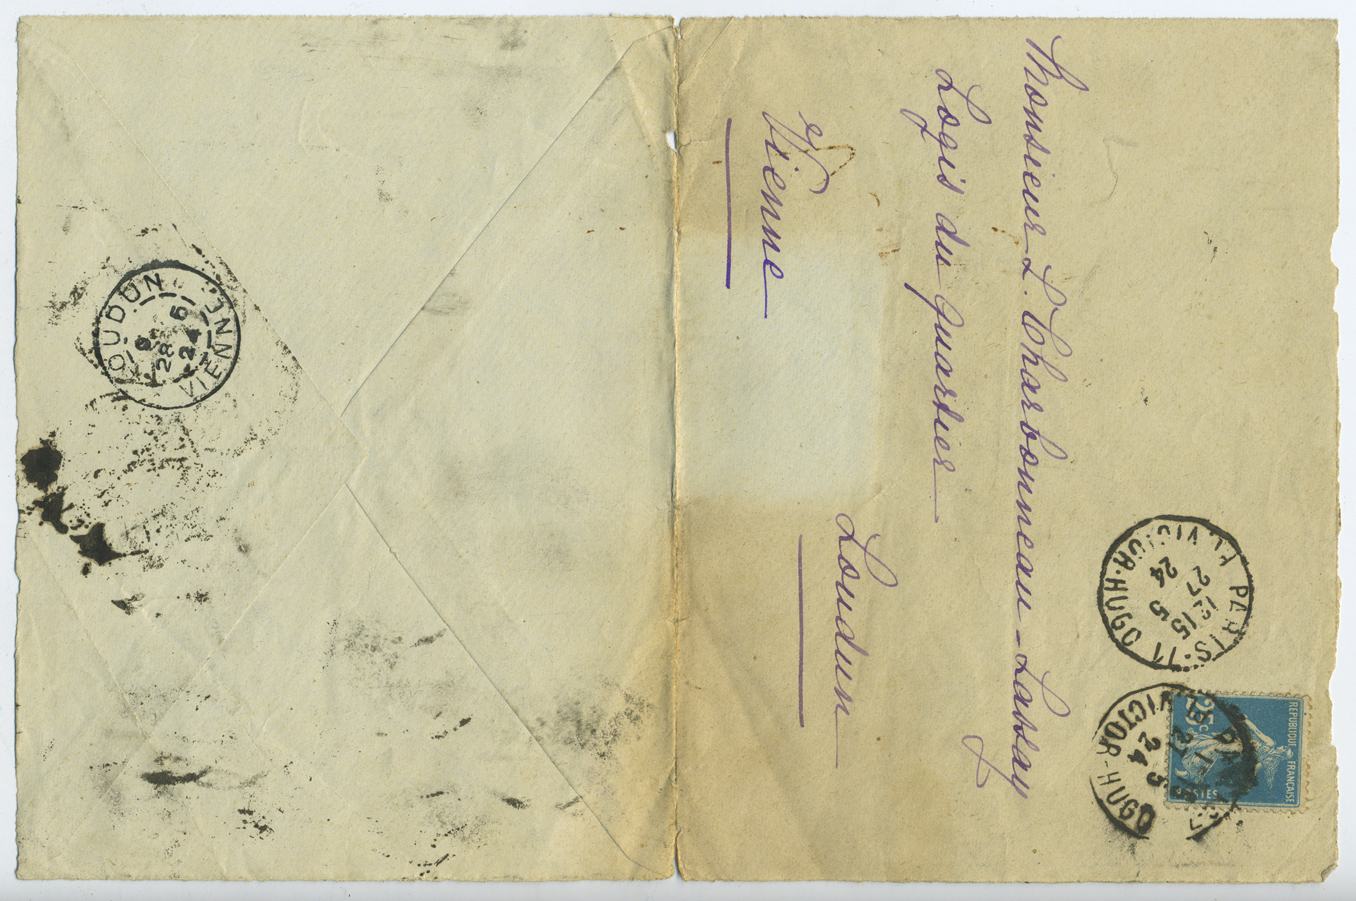 Monsieur L. Charbonneau-Lassay
Logis du Quartier
Loudun
Vienne
PARIS-11 AV. VICTOR-HUGO
12 15
27 5
24
REPUBLIQUE FRANÇAISE
25c
POSTES
VICTOR-HUGO
27
5
24
LOUDUN VIENNE
28 5
24